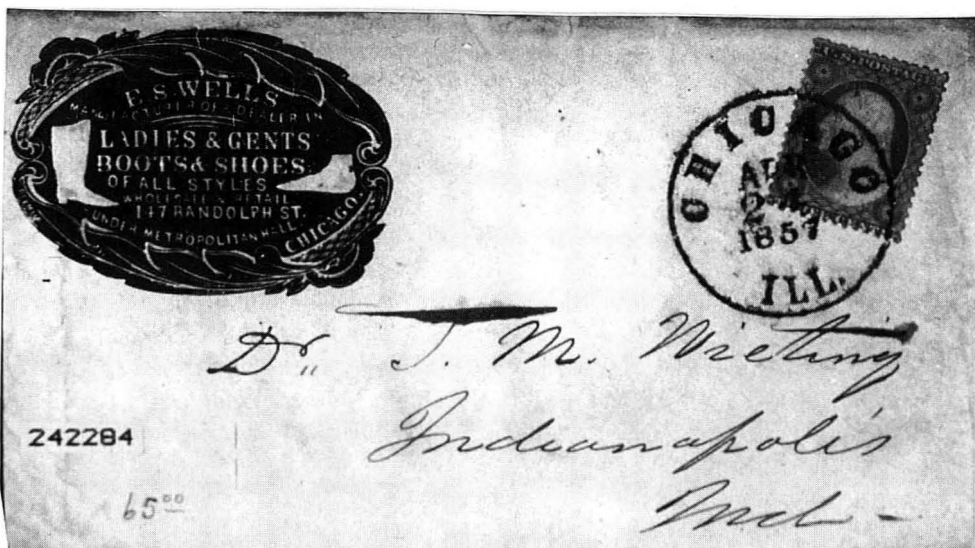 E. S. WELLS
MANUFACTURER OF & DEALER IN
LADIES & GENTS
BOOTS & SHOES
OF ALL STYLES
WHOLESALE & RETAIL
147 RANDOLPH ST.
UNDER METROPOLITAN HALL
CHICAGO
U.S. POSTAGE
CHICAGO
2
1857
ILL.
Dr. J. M. Wieting
Indianapolis
Ind -
242284
65.00